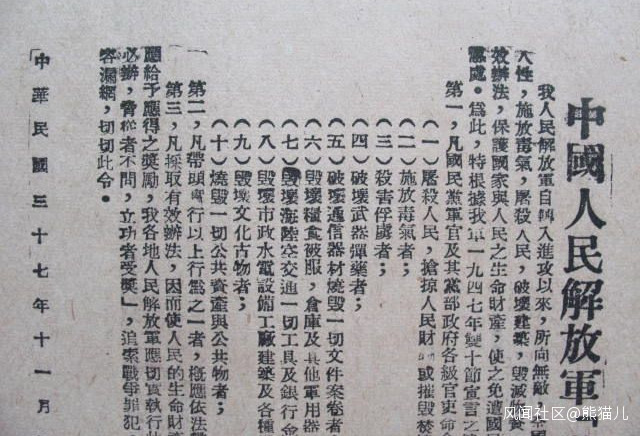 中國人民解放軍
我人民解放軍自轉入進攻以來，所向無敵，
人性，施放毒氣，屠殺人民，破壞建築，毀滅物資
效辦法，保護國家與人民之生命財產，使之免遭國
懲處。爲此，特根據我軍一九四七年雙十節宣言之
第一，凡國民黨軍官及其黨部政府各級官吏命令
（一）屠殺人民，搶掠人民財 或摧毀焚
（二）施放毒氣者；
（三）殺害俘虜者；
（四）破壞武器彈藥者；
（五）破壞通信器材燒毀一切文件案卷者
（六）毀壞糧食被服，倉庫及其他軍用器
（七）毀壞海陸空交通一切工具及銀行金
（八）毀壞市政水電設備工廠建築及各種
（九）毀壞文化古物者；
（十）燒毀一切公共資產與公共物者；
第二，凡帶頭實行以上行爲之一者，概應依法
第三，凡採取有效辦法，因而使人民的生命財
應給予應得之獎勵，我各地人民解放軍應切實執行此
必辦，脅從者不問，立功者受獎」，追索戰爭罪犯，
容漏網，切切此令。
中華民國三十七年十一月
风闻社区@熊猫儿